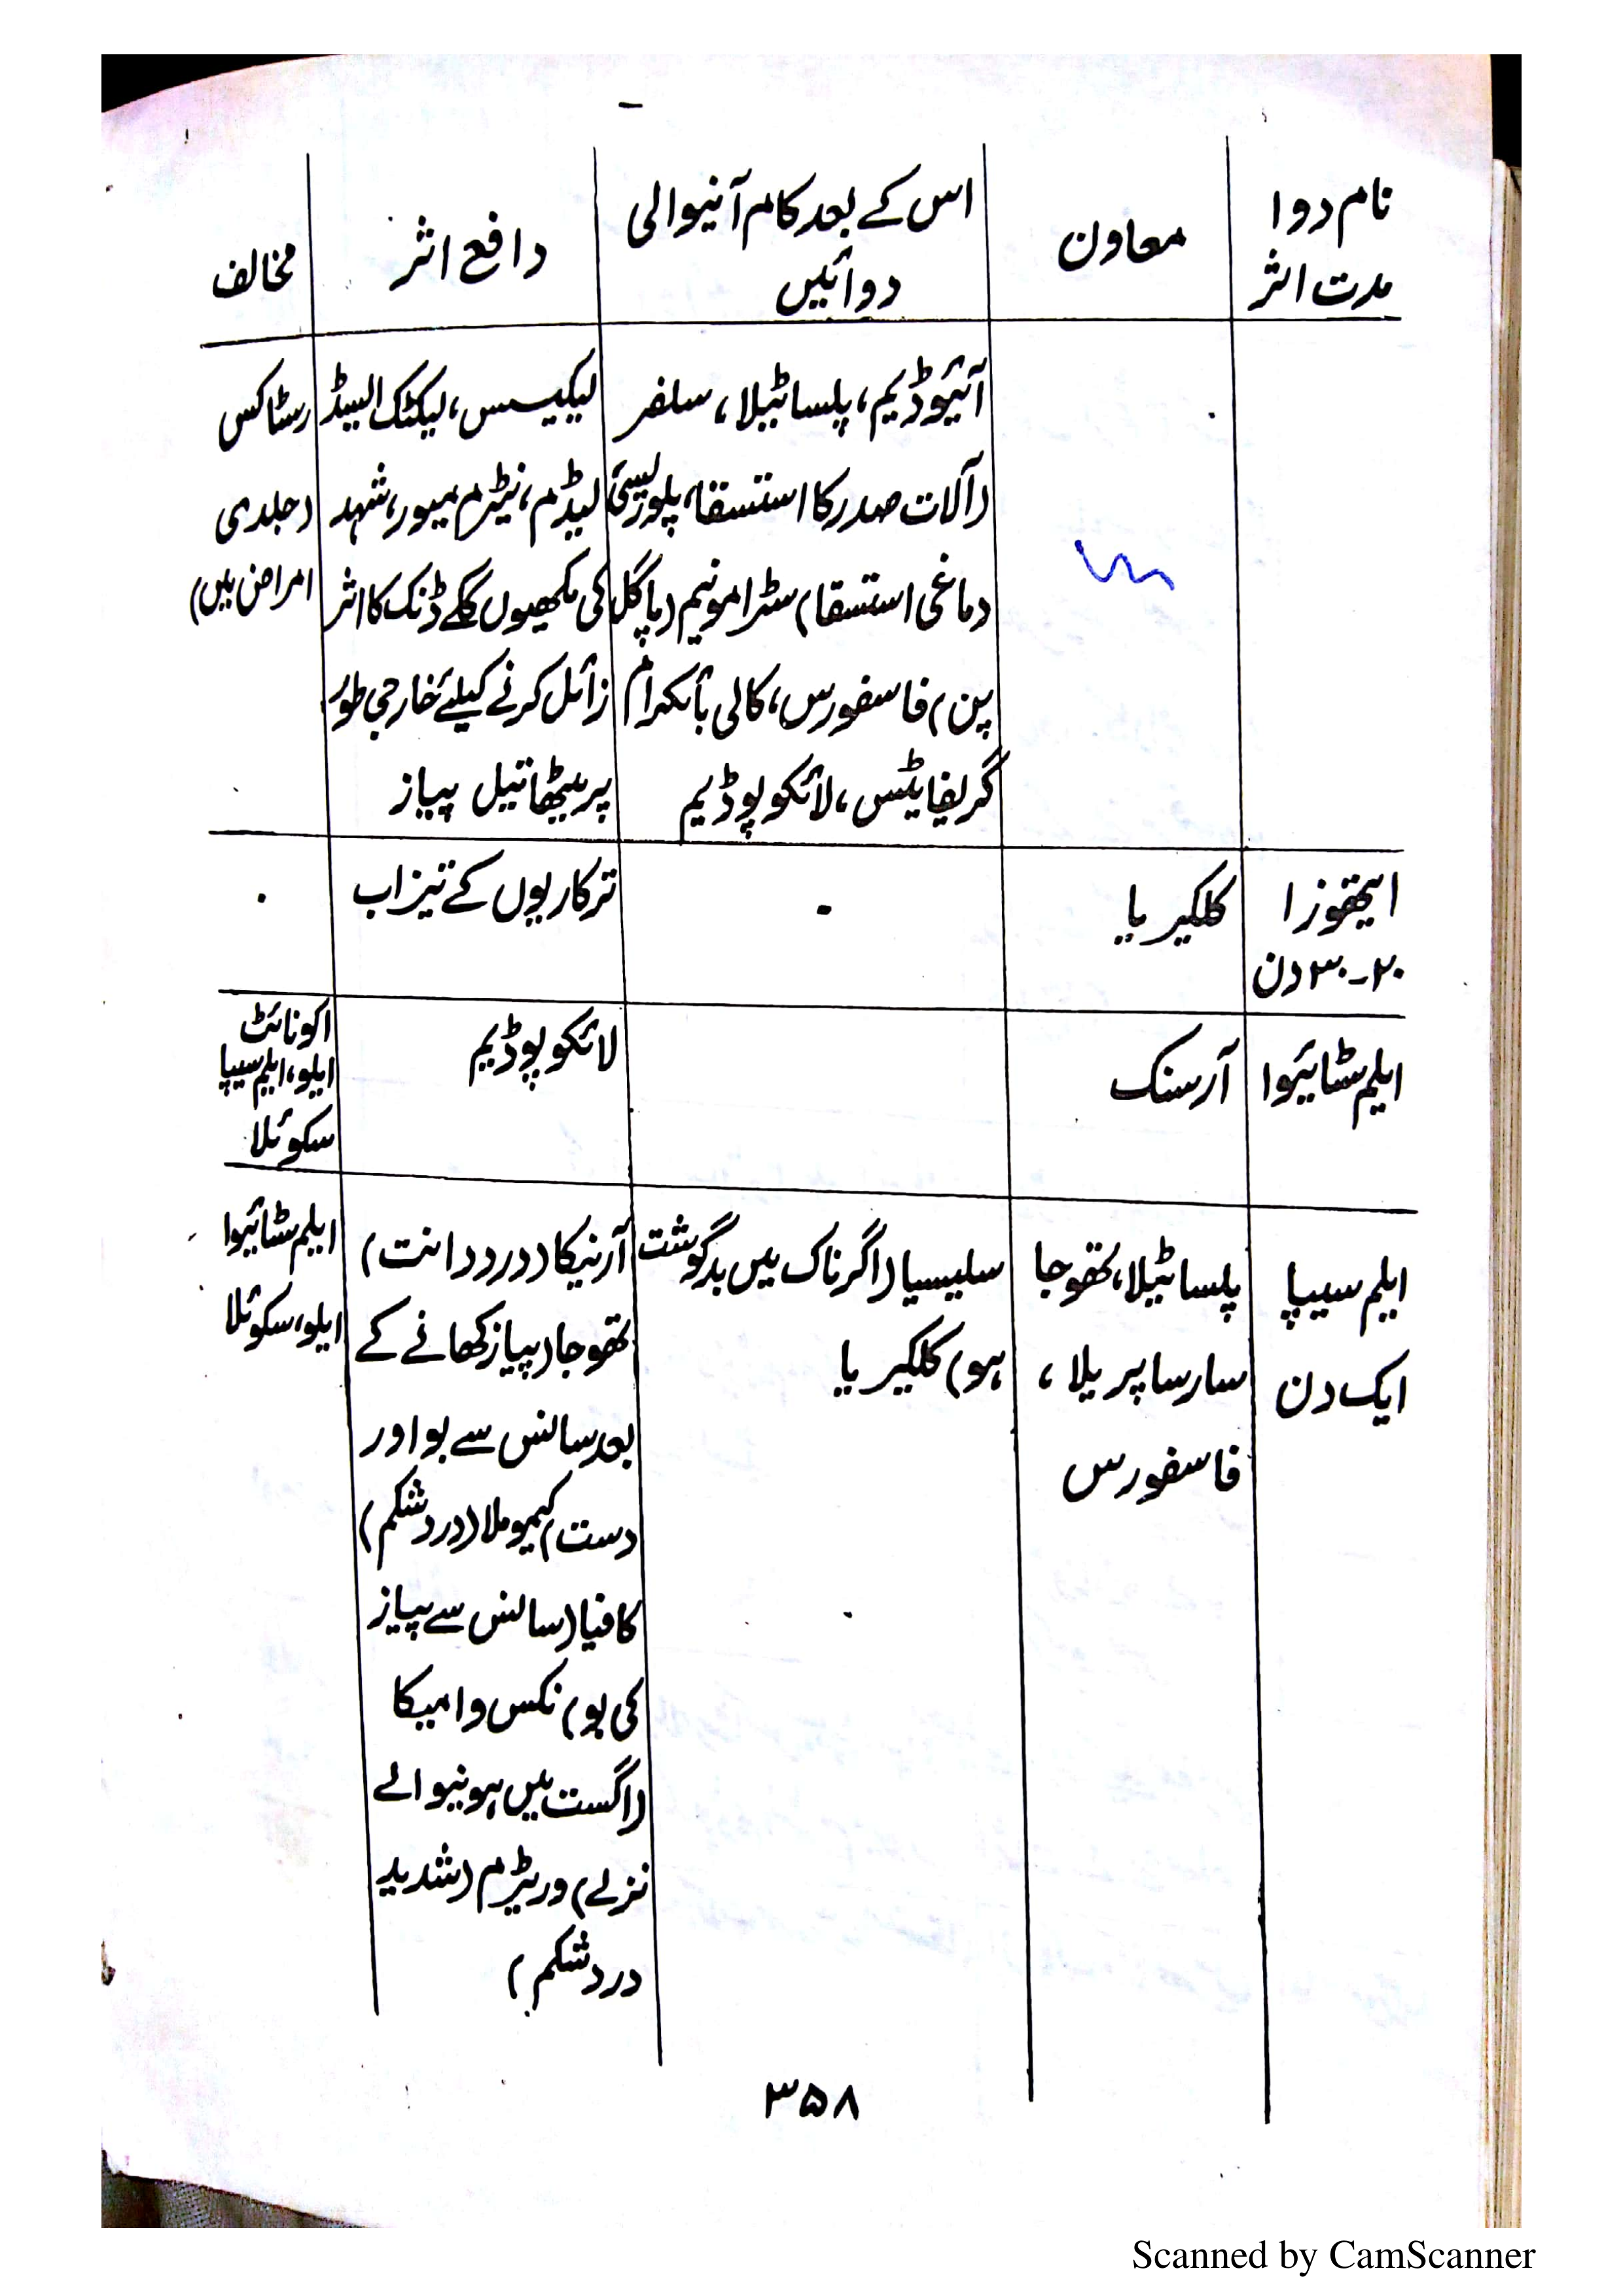 نام دوا
مدت اثر
معاون
اس کے بعد کام آنیوالی
دوائیں
دافع اثر
مخالف
آئیوڈیم، پلساٹیلا، سلفر
(آلات صدر کا استسقا، پلورسی
دماغی استسقا) سٹرامونیم (پاگل
پن) فاسفورس، کالی بائکرام
گریفائٹس، لائکوپوڈیم
لیکیسس، لیکٹک ایسڈ
لیڈم، نیٹرم میور، شہد
کی مکھیوں کے ڈنک کا اثر
زائل کرنے کیلئے خارجی طور
پر میٹھا تیل پیاز
رسٹاکس
(جلدی
امراض میں)
ایتھوزا
۲۰-۳۰ دن
کلکیریا
-
ترکاریوں کے تیزاب
ایلم سٹائیوا
آرسنک
لائکوپوڈیم
اکونائٹ
ایلو، ایلم سیپا
سکوئلا
ایلم سیپا
ایک دن
پلساٹیلا، تھوجا
سارساپریلا،
فاسفورس
سلیسیا (اگر ناک میں بدگوشت
ہو) کلکیریا
آرنیکا (درد دانت)
تھوجا (پیاز کھانے کے
بعد سانس سے بو اور
دست) کیموملا (درد شکم)
کافیا (سانس سے پیاز
کی بو) نکس وامیکا
(اگست میں ہونیوالے
نزلے) وریٹرم (شدید
درد شکم)
ایلم سٹائیوا
ایلو، سکوئلا
۳۵۸
Scanned by CamScanner